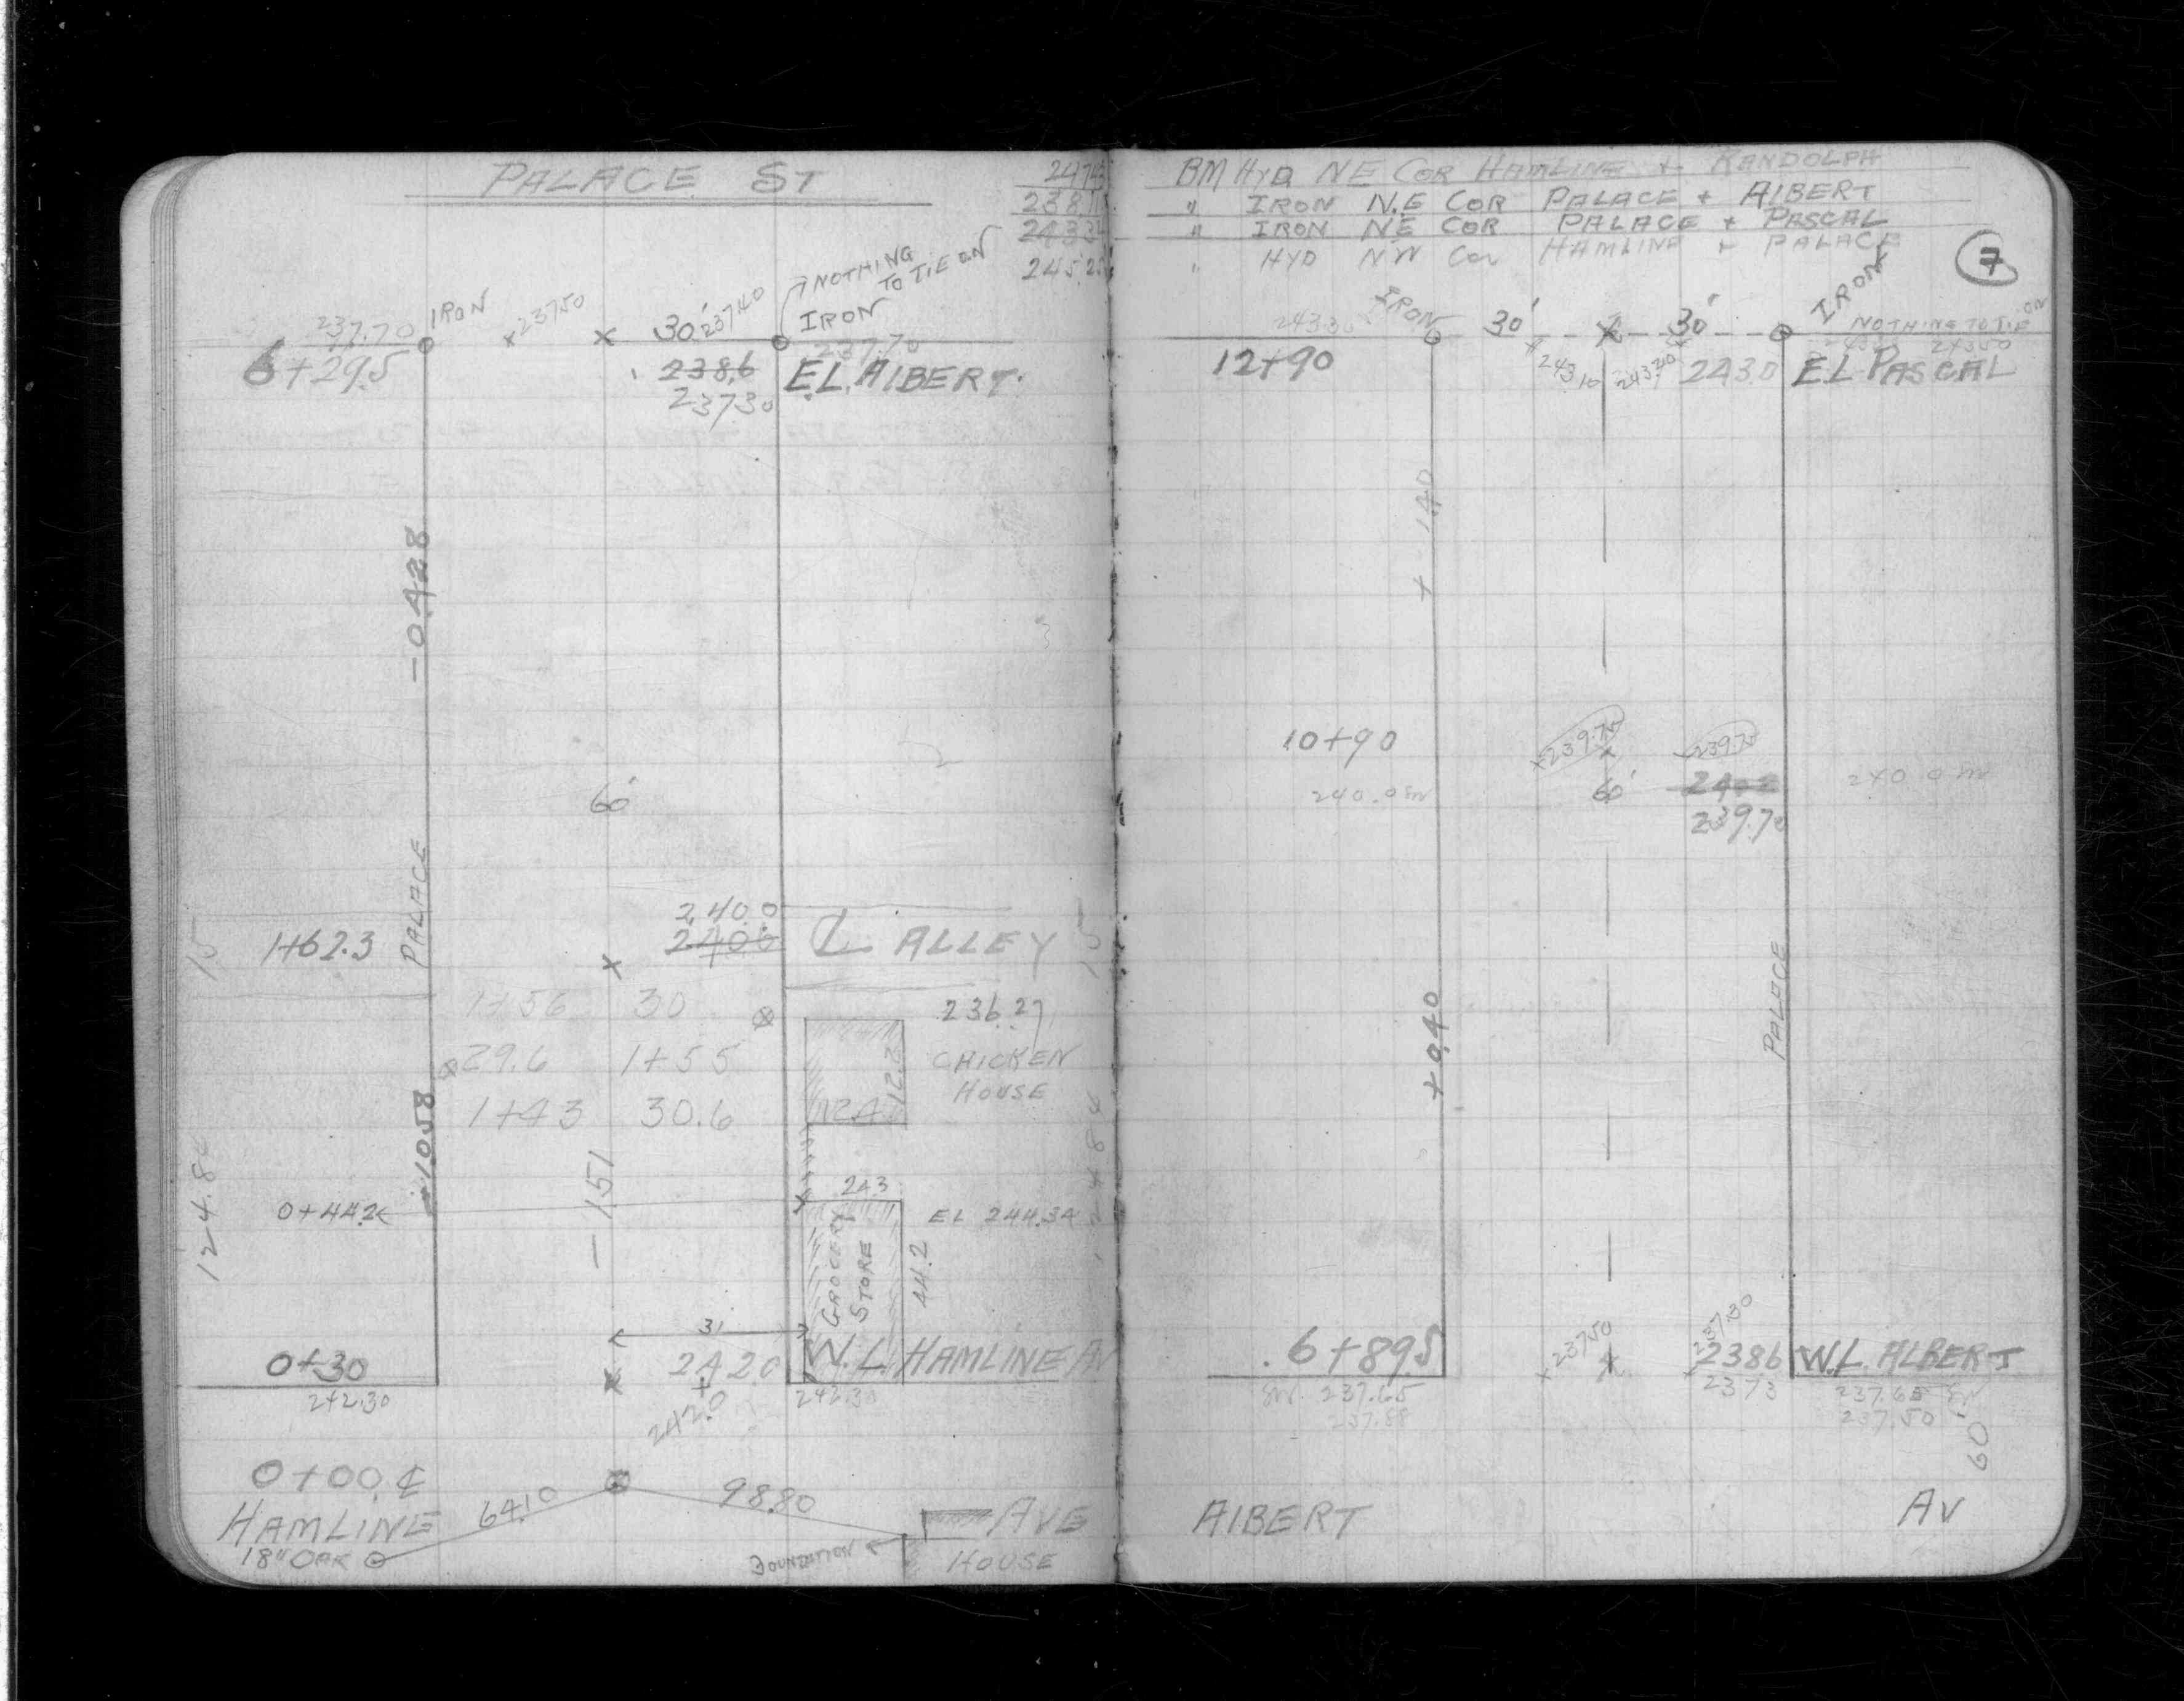 PALACE ST
BM HYD NE COR HAMLINE + RANDOLPH
" IRON N.E COR PALACE + AlBERT
" IRON NE COR PALACE + PASCAL
" HYD NW Cor HAMLINE + PALACE
7
NOTHING
TO TIE ON
IRON
237.70
IRON
×23750
30'
23740
237.70
6+29.5
2386
EL. AlBERT.
23730
-0.428
60'
PALACE
240.0
2400
15
1+62.3
℄ ALLEY
15
1+56 30
236.27
29.6 1+55
CHICKEN
HOUSE
12.2
12.4
1+43 30.6
-1.058
-1.51
124.8
24.3
0+44.2
EL 244.34
GROCERY
STORE
44.2
31
0+30
242.0
W.L. HAMLINE AV
242.30
242.0
242.30
0+00 ℄
HAMLINE
64.10
98.80
AVE
18" OAK
FOUNDATION
HOUSE
243.30
IRON
30'
30'
IRON
NOTHING TO TIE ON
12+90
243.10
243.20
2430
EL PASCAL
+1.40
10+90
239.75
239.75
240.0
60'
2402
240.0
239.70
PALACE
+0.40
237.50
237.30
6+89.5
2386
W.L. ALBERT
237.65
2373
237.65
237.50
60'
AlBERT
AV